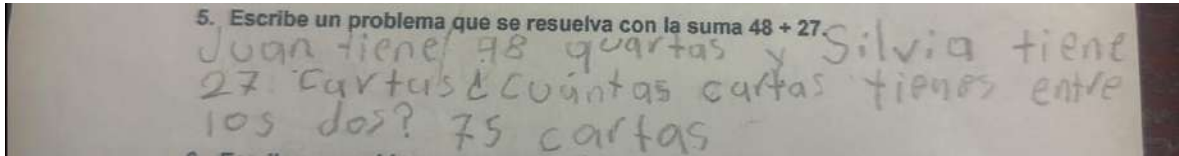 5. Escribe un problema que se resuelva con la suma 48 + 27.
Juan tiene 48 quartas y Silvia tiene
27 cartas ¿Cuántas cartas tienes entre
los dos? 75 cartas